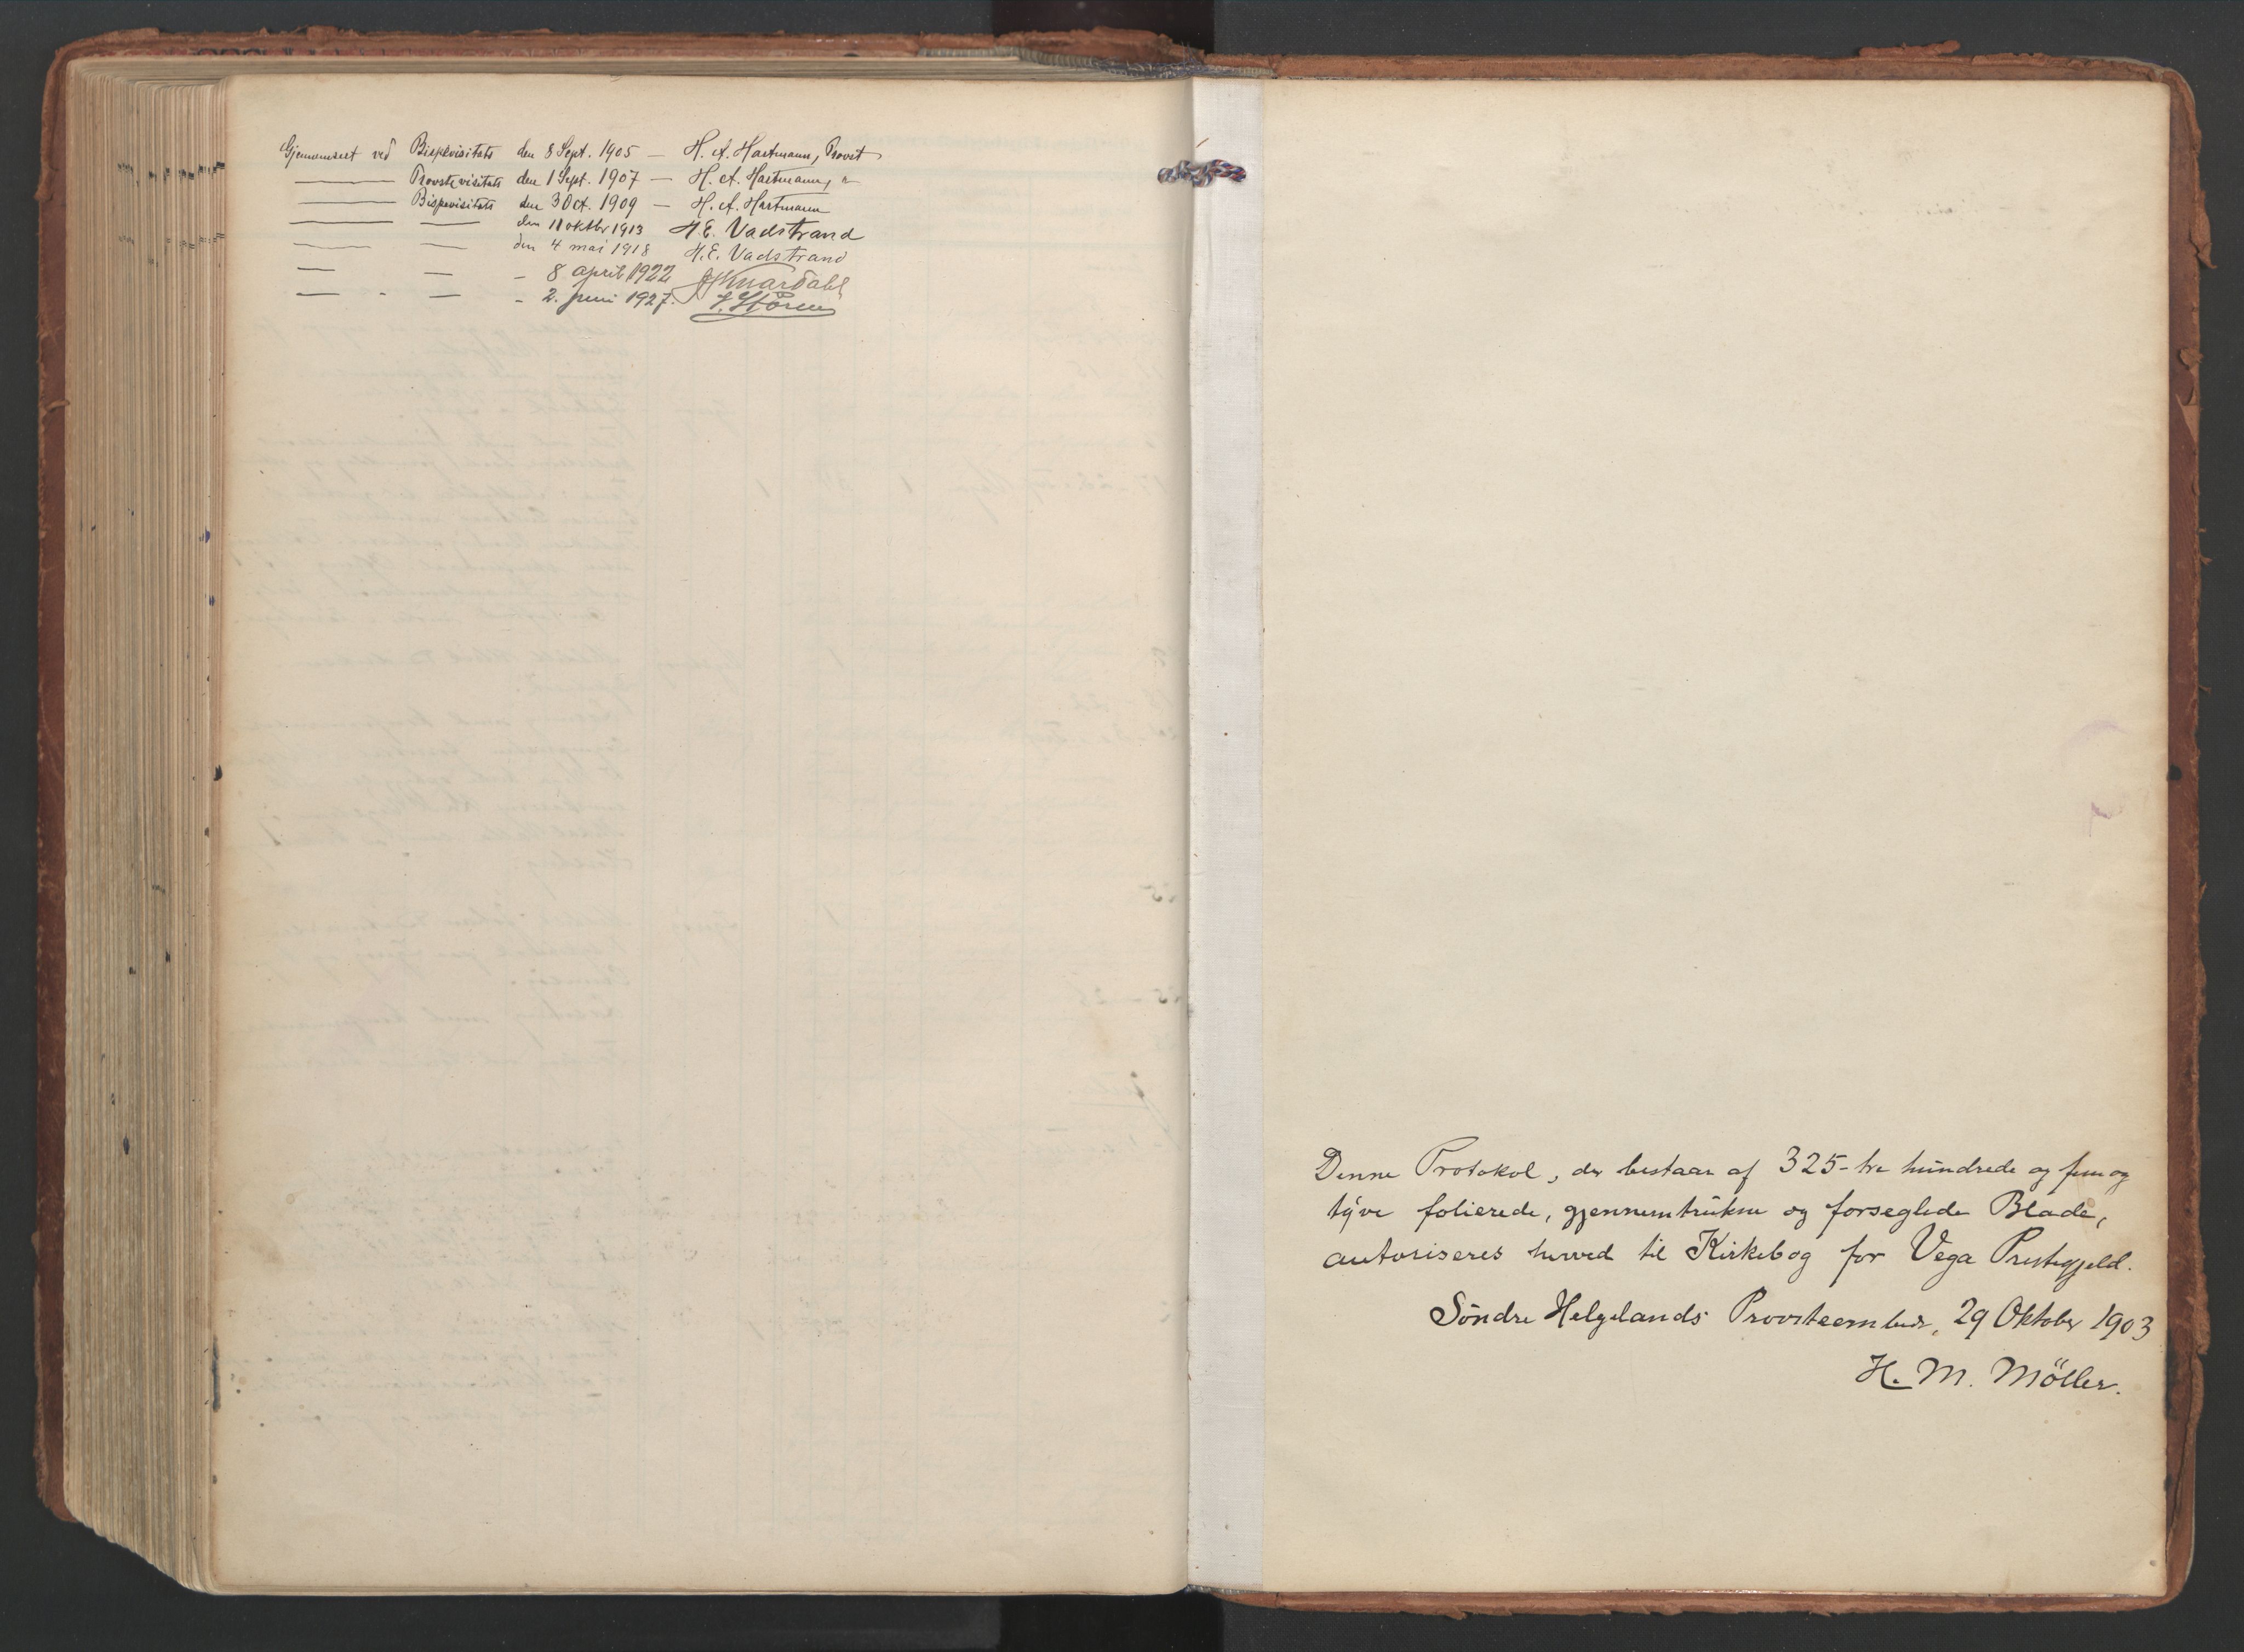 Gjennemseet ved Bispevisitats den 8 Sept. 1905 — H. A. Hartmann, Provst
— Provstevisitats den 1 Sept. 1907 — H. A. Hartmann, "
— Bispevisitats den 3 Oct. 1909 — H. A. Hartmann
— — den 11 oktbr 1913 H.E. Vadstrand
— — den 4 mai 1918 H.E. Vadstrand
— — - 8 april 1922
— - — - 2. juni 1927.
Denne Protokol, der bestaar af 325 - tre hundrede og fem og
tyve folierede, gjennemtrukne og forseglede Blade,
autoriseres herved til Kirkebog for Vega Prestegjeld.
Söndre Helgelands Provsteembede, 29 Oktober 1903
H. M. Möller.